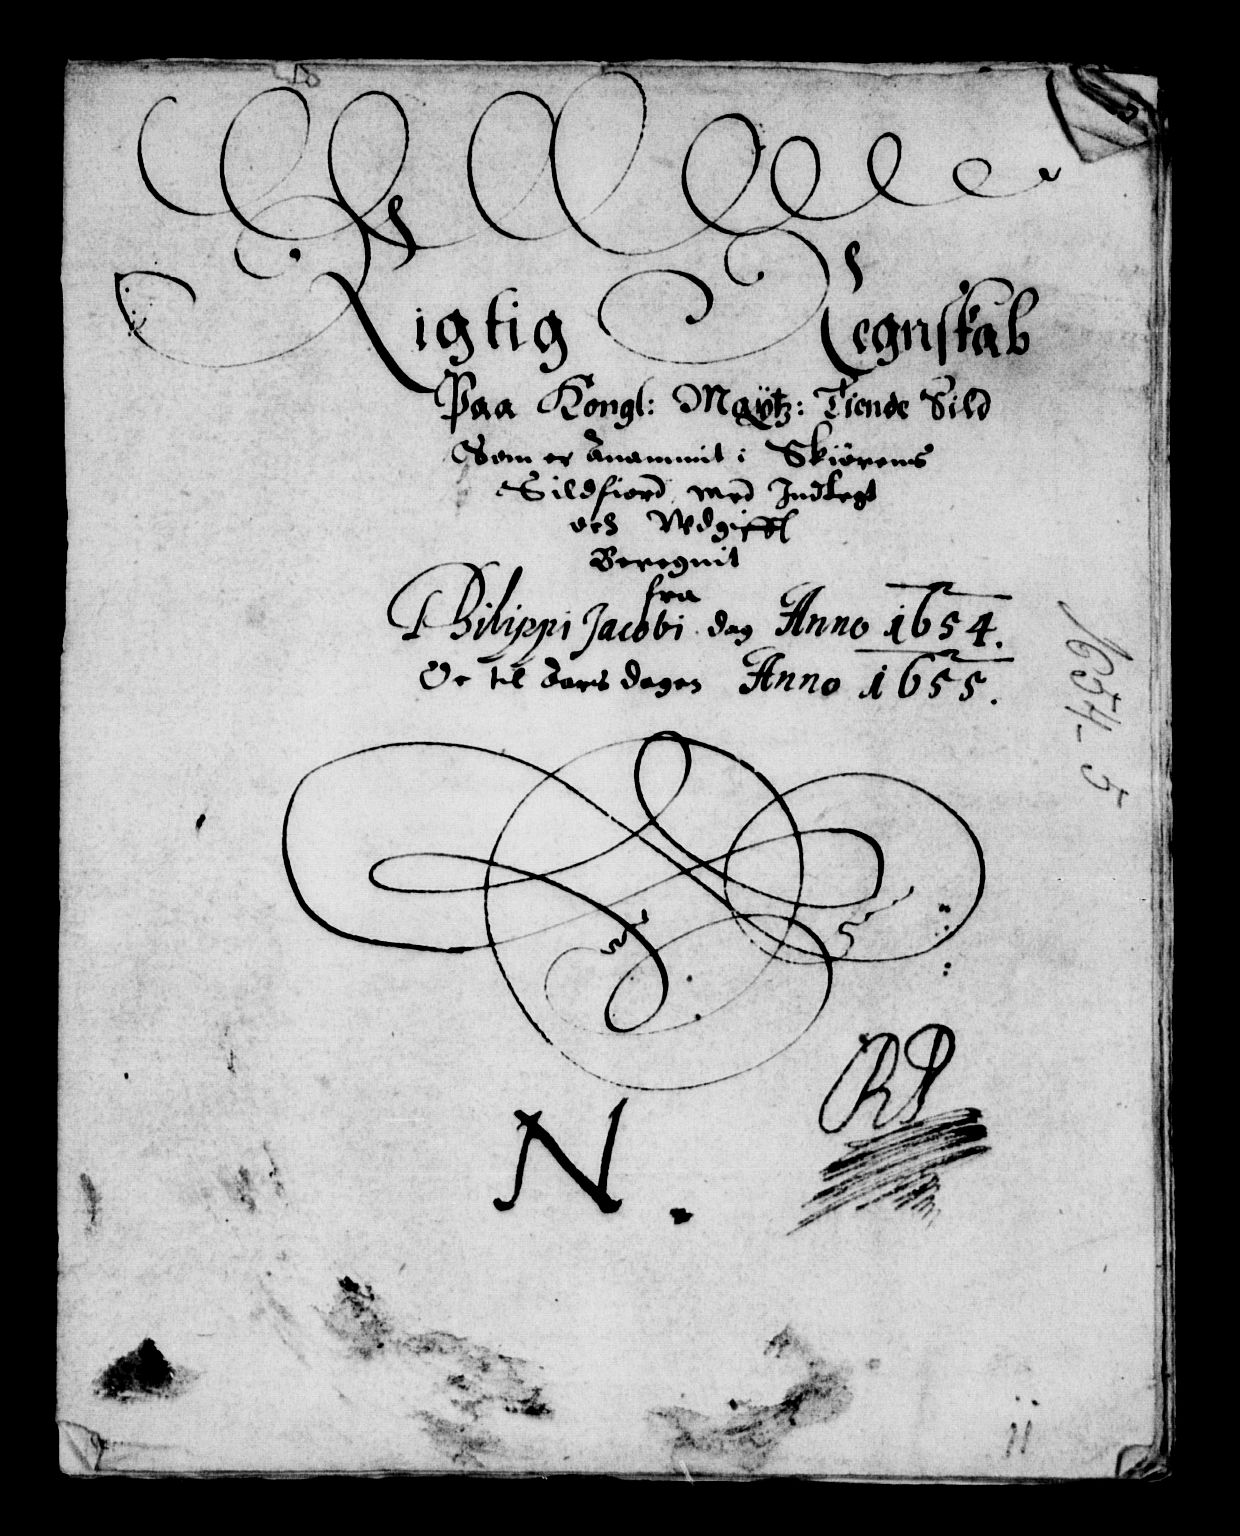 Rigtig Regnskab
Paa Kongl: Maÿtz: Tiende Sild
Som er Anammit i Skiörens
Sildfiord med Indtegt
och Wdgifft
Beregnit
fra
Philippi Jacobi dag Anno 1654.
Oc til Aars dagen Anno 1655.
1654-5
N.
RP
ii